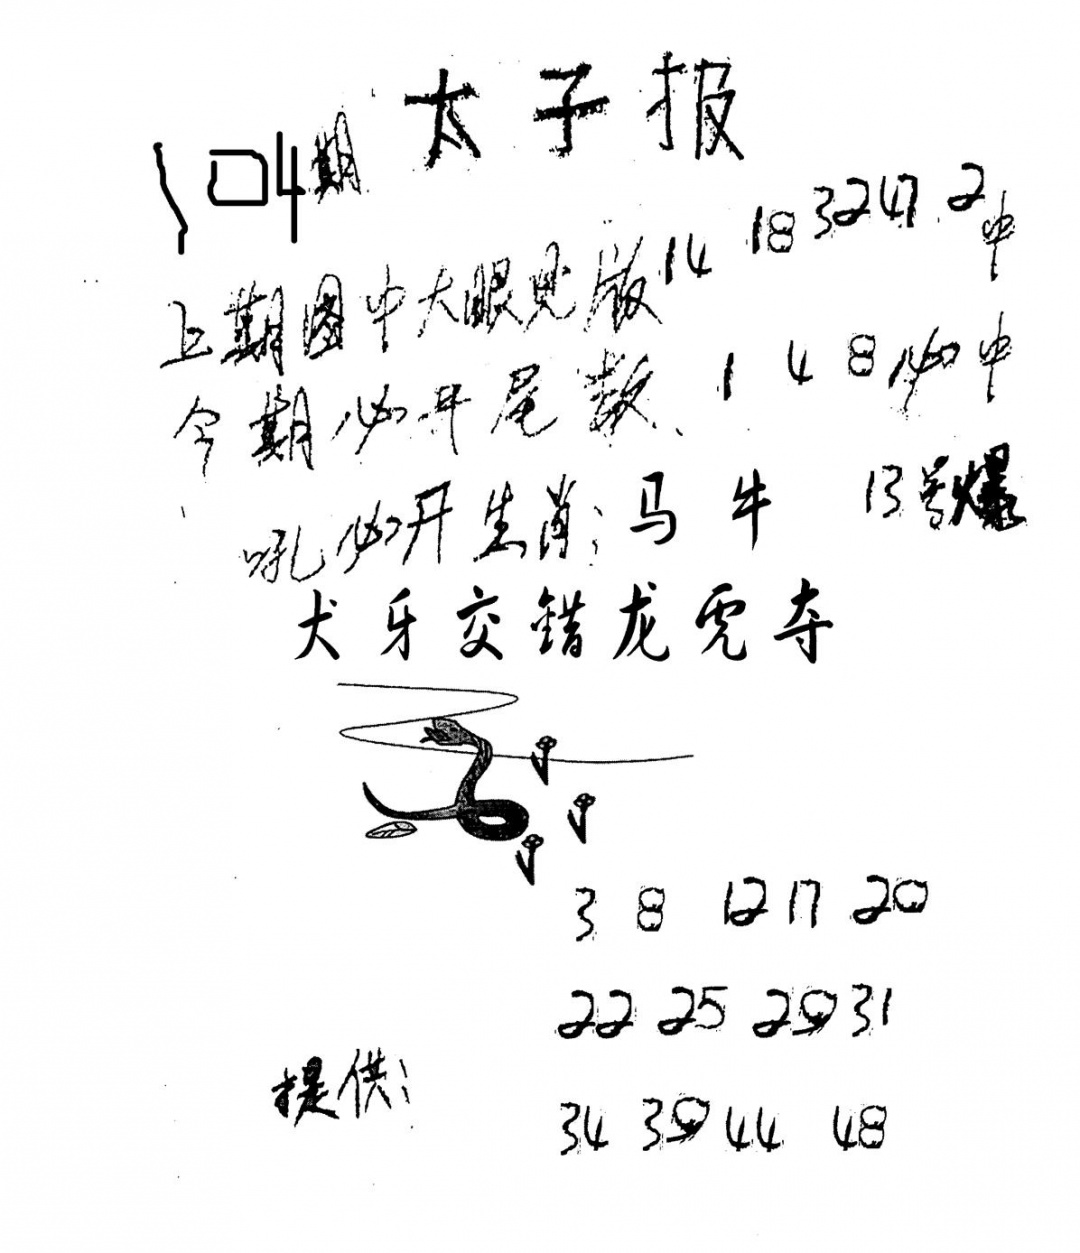 太子报
104期
上期图中大眼见版14 18 32 47 2中
今期必开尾数、1 4 8必中
吼必开生肖:马牛 13号爆
犬牙交错龙虎夺
3 8 12 17 20
22 25 29 31
提供:
34 39 44 48